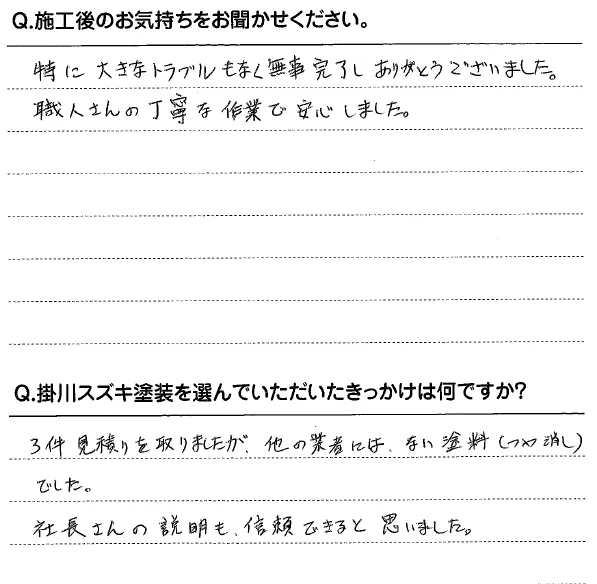 Q.施工後のお気持ちをお聞かせください。
特に大きなトラブルもなく無事完了しありがとうございました。
職人さんの丁寧な作業で安心しました。
Q.掛川スズキ塗装を選んでいただいたきっかけは何ですか?
3件見積りを取りましたが、他の業者には、ない塗料(つや消し)
でした。
社長さんの説明も、信頼できると思いました。